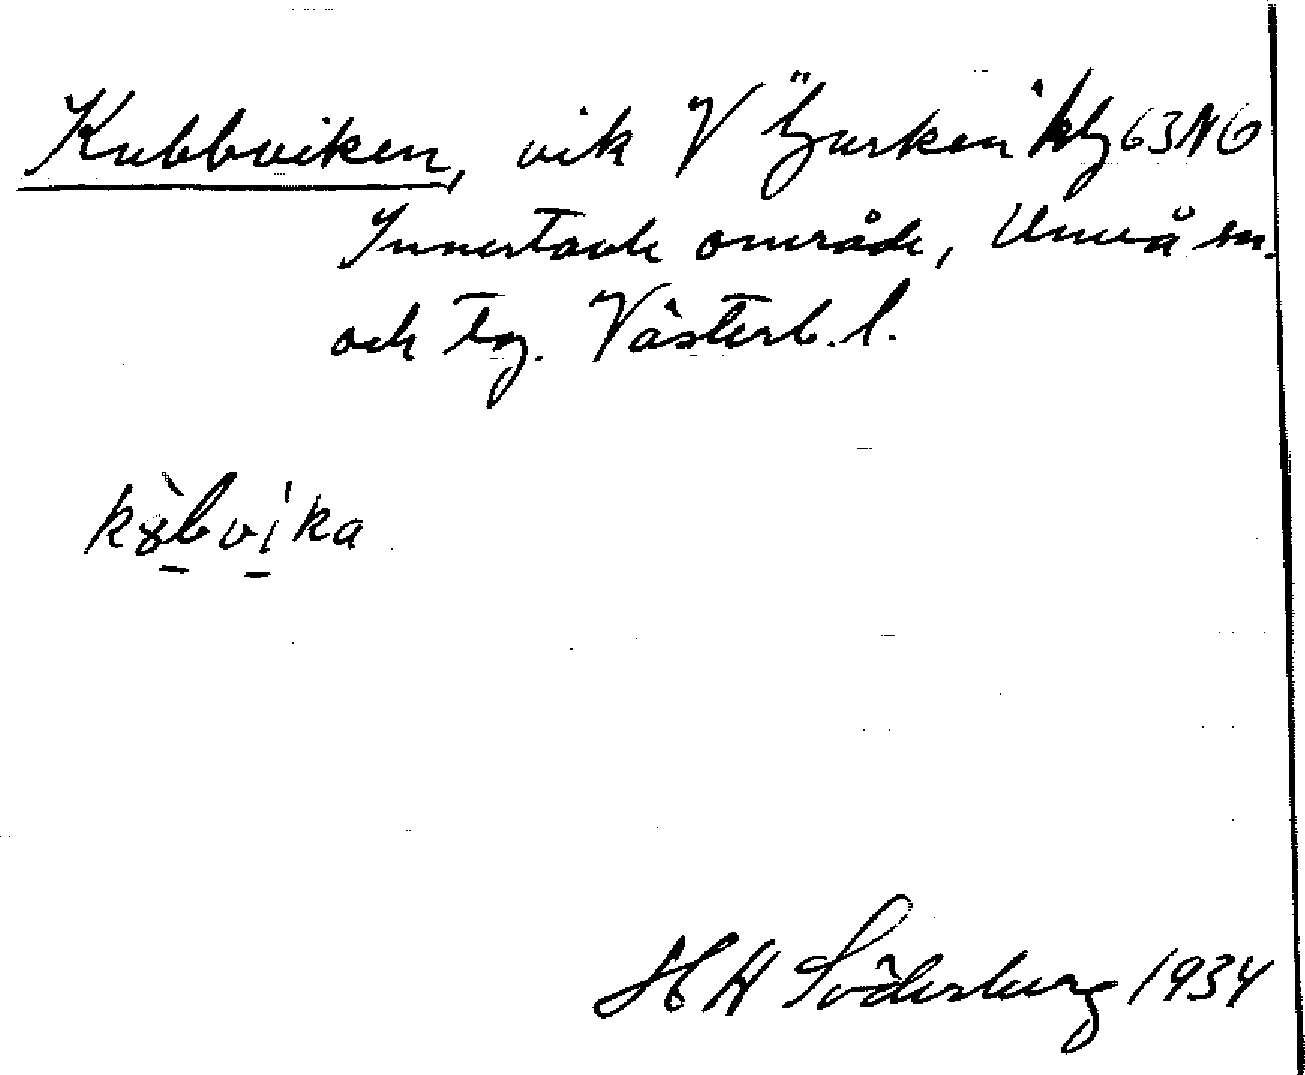 Kubbviken, vik V Tjurken kbl 63 N6
Innertavle område, Umeå sn.
och tg. Västerb. l.
kȣ̀bvika
H W Söderberg 1934